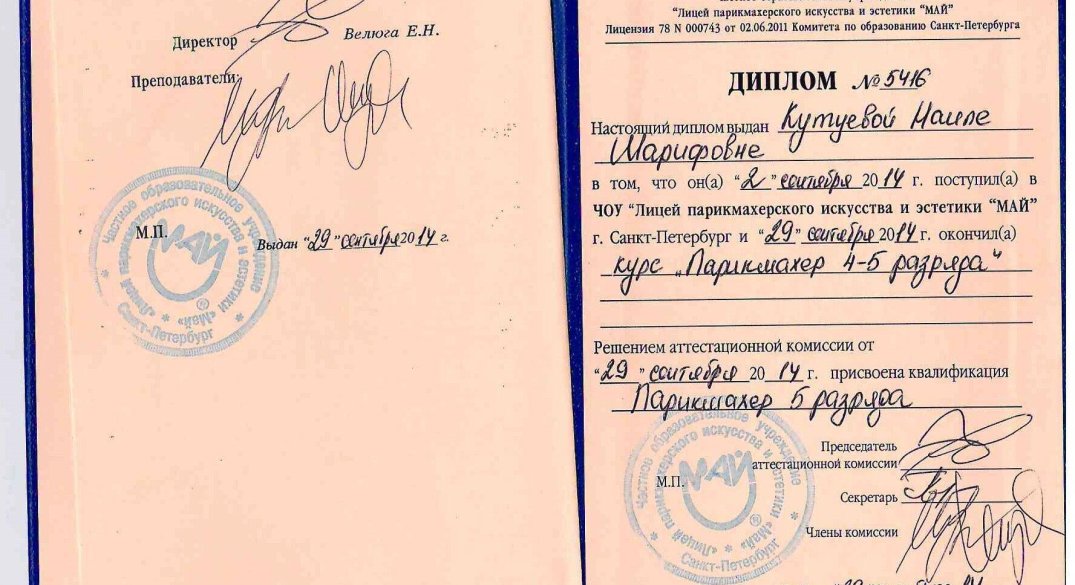 Директор Велюга Е.Н.
Преподаватели:
М.П.
Выдан “29” сентября 2014 г.
Частное образовательное учреждение
«Лицей парикмахерского искусства и эстетики «Май»
Санкт-Петербург
МАЙ
®
“Лицей парикмахерского искусства и эстетики “МАЙ”
Лицензия 78 N 000743 от 02.06.2011 Комитета по образованию Санкт-Петербурга
ДИПЛОМ № 5416
Настоящий диплом выдан Кутуевой Наиле
Шарифовне
в том, что он(а) “2” сентября 2014 г. поступил(а) в
ЧОУ “Лицей парикмахерского искусства и эстетики “МАЙ”
г. Санкт-Петербург и “29” сентября 2014 г. окончил(а)
курс „Парикмахер 4-5 разряда“
Решением аттестационной комиссии от
“29” сентября 2014 г. присвоена квалификация
Парикмахер 5 разряда
Председатель
аттестационной комиссии
М.П.
Секретарь
Члены комиссии
Частное образовательное учреждение
«Лицей парикмахерского искусства и эстетики «Май»
Санкт-Петербург
МАЙ
®